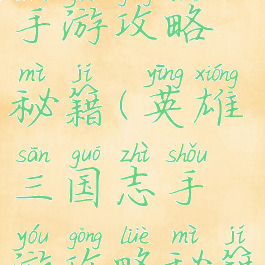 手游攻略
mì jí yīng xióng
秘籍(英雄
sān guó zhì shǒu
三国志手
yóu gōng lüè mì jí
游攻略秘籍